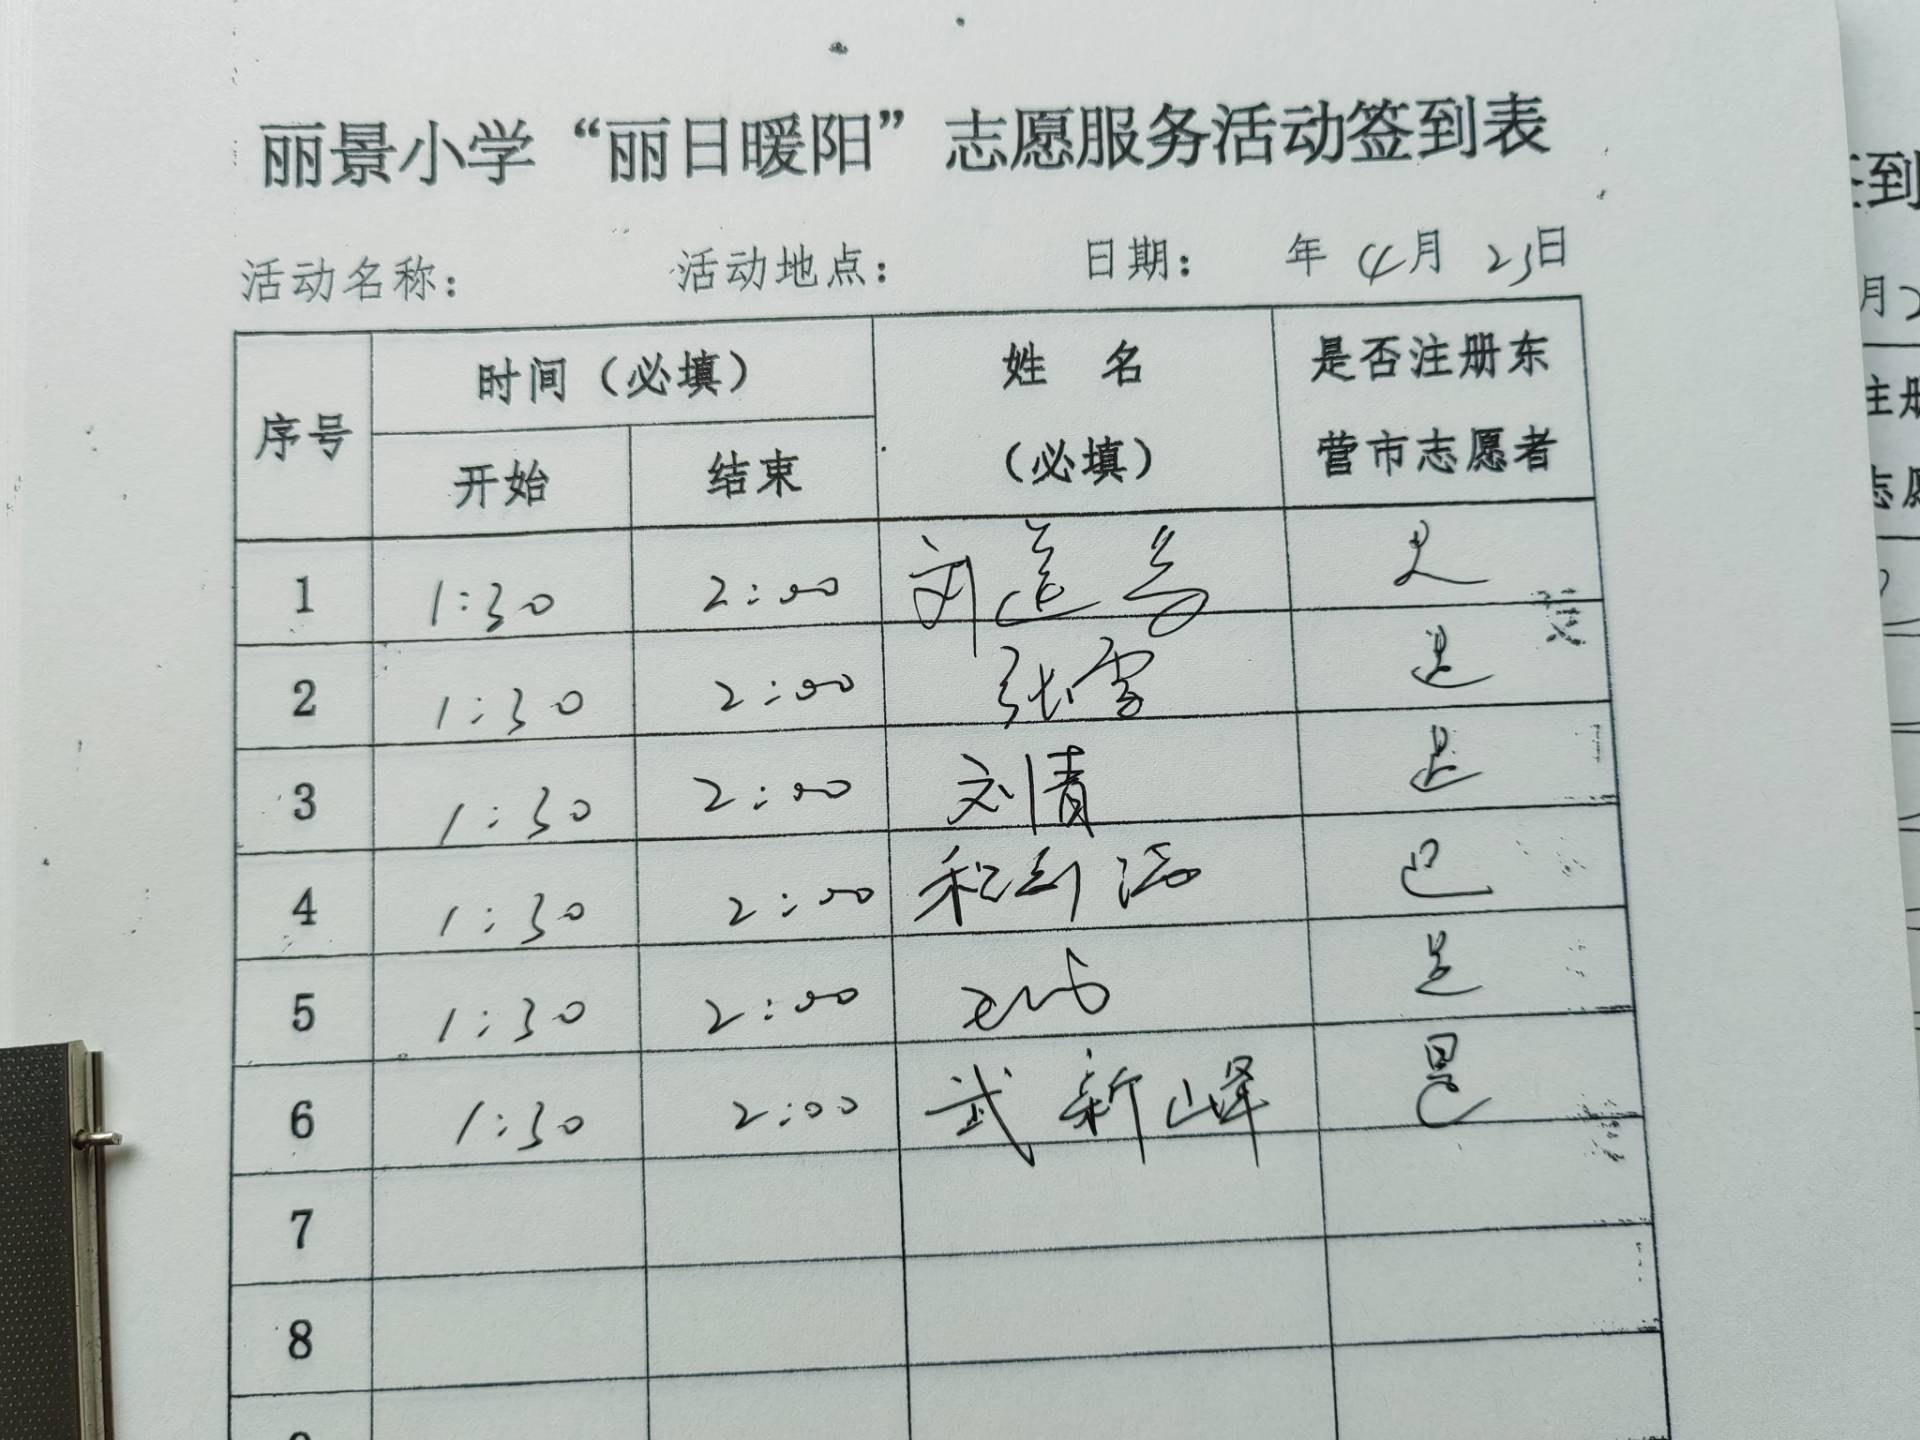 丽景小学“丽日暖阳”志愿服务活动签到表
活动名称: 活动地点: 日期: 年 4月 23日
序号 时间（必填） 姓 名（必填） 是否注册东营市志愿者
开始 结束
1 1:30 2:00 刘 是
2 1:30 2:00 张雪 是
3 1:30 2:00 刘倩 是
4 1:30 2:00 是
5 1:30 2:00 是
6 1:30 2:00 武新峰 是
7
8
签到
月2
注册
志愿